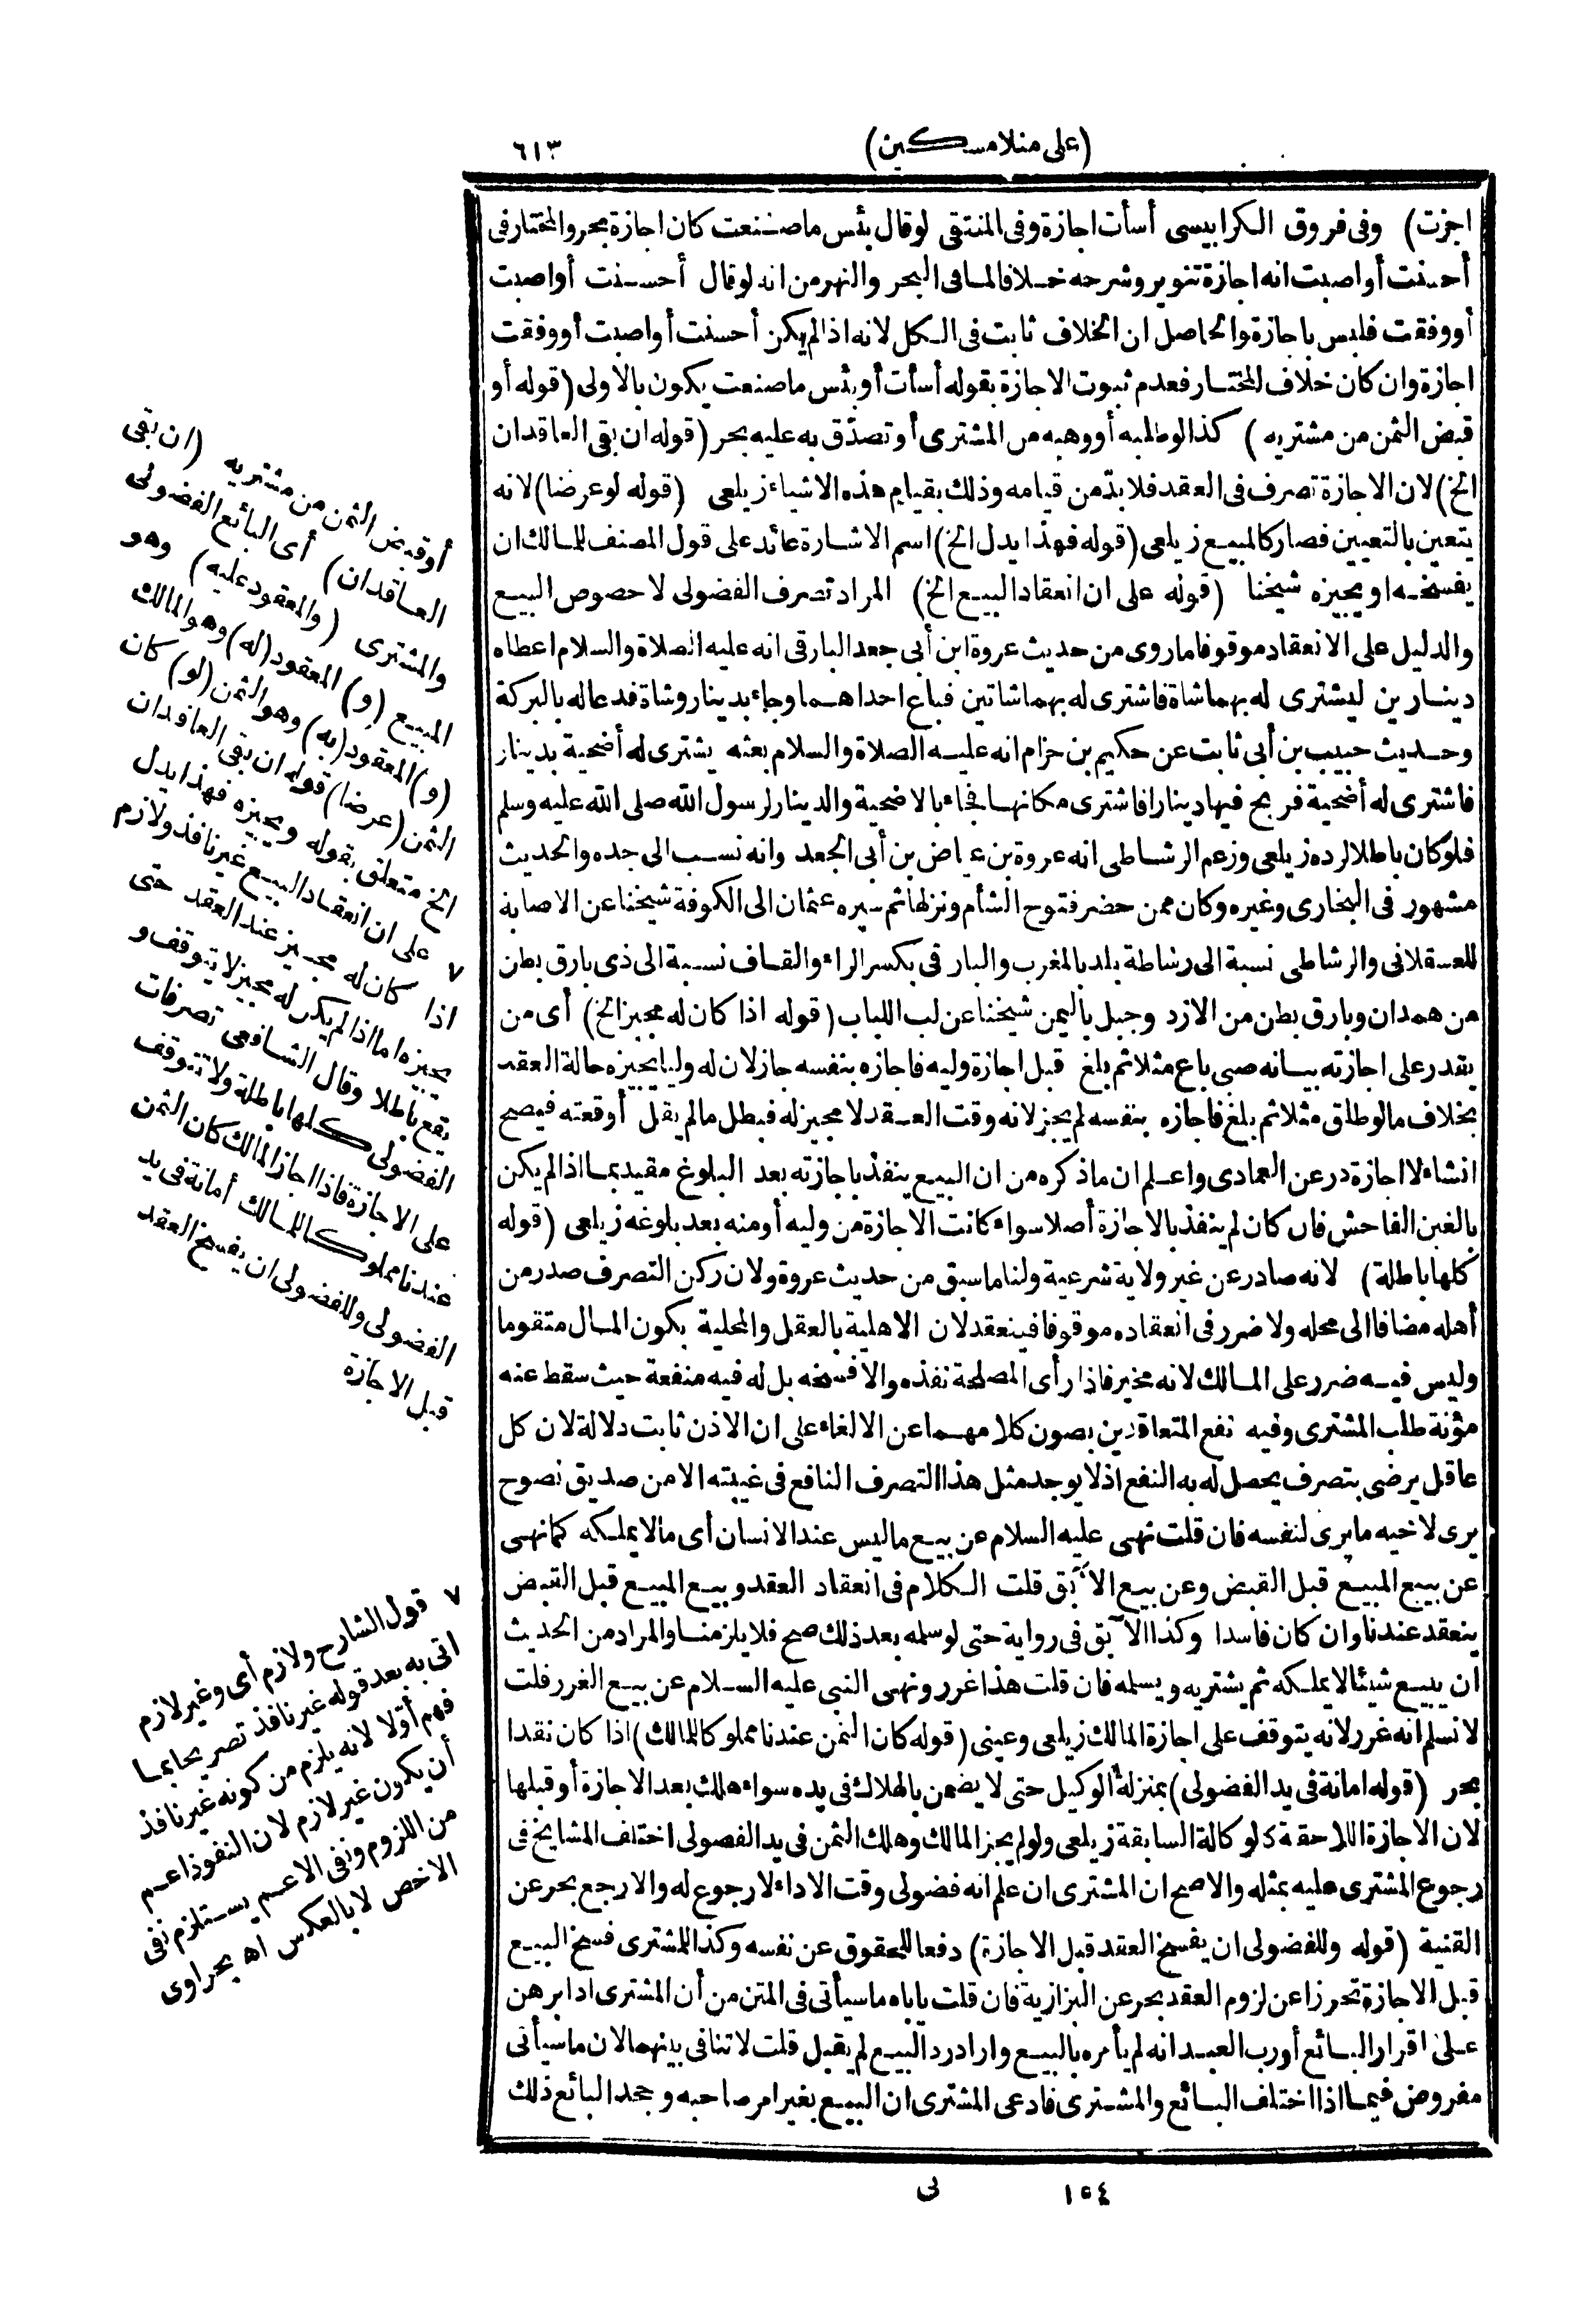 (على منلا مسكين) ٦١٣
اجزت) وفى فروق الكرابيسى أسأت اجازة وفى المنتقى لوقال بئس ما صنعت كان اجازة بحر والمختار فى
أحسنت أو اصبت انه اجازة تنوير وشرحه خلافا لما فى البحر والنهر من انه لوقال أحسنت أواصبت
أووفقت فليس باجازة والحاصل ان الخلاف ثابت فى الكل لانه اذا لم يكن أحسنت أواصبت أووفقت
اجازة وان كان خلاف المختار فعدم ثبوت الاجازة بقوله أسأت أو بئس ما صنعت يكون بالاولى (قوله أو
قبض الثمن من مشتريه) كذا لوطلبه أووهبه من المشترى أوتصدّق به عليه بحر (قوله ان بقى العاقدان
الخ) لان الاجازة تصرف فى العقد فلا بدّ من قيامه وذلك بقيام هذه الاشياء زيلعى (قوله لو عرضا) لانه
يتعين بالتعيين فصار كالمبيع زيلعى (قوله فهذا يدل الخ) اسم الاشارة عائد على قول المصنف للمالك ان
يفسخه او يجيزه شيخنا (قوله على ان انعقاد البيع الخ) المراد تصرف الفضولى لا خصوص البيع
والدليل على الانعقاد موقوفا ما روى من حديث عروة ابن أبى جعد البارقى انه عليه الصلاة والسلام اعطاه
دينارين ليشترى له بهما شاة فاشترى له بهما شاتين فباع احداهما وجاء بدينار وشاة فدعا له بالبركة
وحديث حبيب بن أبى ثابت عن حكيم بن حزام انه عليه الصلاة والسلام بعثه يشترى له أضحية بدينار
فاشترى له أضحية فربح فيها دينارا فاشترى مكانها فجاء بالاضحية والدينار لرسول الله صلى الله عليه وسلم
فلو كان باطلا لرده زيلعى وزعم الرشاطى انه عروة بن عياض بن أبى الجعد وانه نسب الى جده والحديث
مشهور فى البخارى وغيره وكان ممن حضر فتوح الشأم ونزلها ثم سيره عثمان الى الكوفة شيخنا عن الاصابة
للعسقلانى والرشاطى نسبة الى رشاطة بلد بالمغرب والبارقى بكسر الراء والقاف نسبة الى ذى بارق بطن
من همدان وبارق بطن من الازد وجبل باليمن شيخنا عن لب اللباب (قوله اذا كان له مجيز الخ) أى من
يقدر على اجازته بيانه صبى باع مثلا ثم بلغ قبل اجازة وليه فاجازه بنفسه جاز لان له وليا يجيزه حالة العقد
بخلاف ما لو طلق مثلا ثم بلغ فاجازه بنفسه لم يجز لانه وقت العقد لا مجيز له فبطل ما لم يقل أوقعته فيصح
انشاء لا اجازة در عن العمادى واعلم ان ما ذكره من ان البيع ينفذ باجازته بعد البلوغ مقيد بما اذا لم يكن
بالغبن الفاحش فان كان لم ينفذ بالاجازة أصلا سواء كانت الاجازة من وليه أو منه بعد بلوغه زيلعى (قوله
كلها باطلة) لانه صادر عن غير ولاية شرعية ولنا ما سبق من حديث عروة ولان ركن التصرف صدر من
أهله مضافا الى محله ولا ضرر فى انعقاده موقوفا فينعقد لان الاهلية بالعقل والمحلية بكون المال متقوما
وليس فيه ضرر على المالك لانه مخير فاذا رأى المصلحة نفذه والا فسخه بل له فيه منفعة حيث سقط عنه
مؤنة طلب المشترى وفيه نفع المتعاقدين بصون كلامهما عن الالغاء على ان الاذن ثابت دلالة لان كل
عاقل يرضى بتصرف يحصل له به النفع اذ لا يوجد مثل هذا التصرف النافع فى غيبته الا من صديق نصوح
يرى لاخيه ما يرى لنفسه فان قلت نهى عليه السلام عن بيع ما ليس عند الانسان أى ما لا يملكه كما نهى
عن بيع المبيع قبل القبض وعن بيع الآبق قلت الكلام فى انعقاد العقد وبيع المبيع قبل القبض
ينعقد عندنا وان كان فاسدا وكذا الآبق فى رواية حتى لو سلمه بعد ذلك صح فلا يلزمنا والمراد من الحديث
ان يبيع شيئا لا يملكه ثم يشتريه ويسلمه فان قلت هذا غرر ونهى النبى عليه السلام عن بيع الغرر قلت
لا نسلم انه غرر لانه يتوقف على اجازة المالك زيلعى وعينى (قوله كان الثمن عندنا مملو كا للمالك) اذا كان نقدا
بحر (قوله امانة فى يد الفضولى) بمنزلة الوكيل حتى لا يضمن بالهلاك فى يده سواء هلك بعد الاجازة أو قبلها
لان الاجازة اللاحقة كالوكالة السابقة زيلعى ولو لم يجز المالك وهلك الثمن فى يد الفضولى اختلف المشايخ فى
رجوع المشترى عليه بمثله والاصح ان المشترى ان علم انه فضولى وقت الاداء لا رجوع له والا رجع بحر عن
القنية (قوله وللفضولى ان يفسخ العقد قبل الاجازة) دفعا للحقوق عن نفسه وكذا للمشترى فسخ البيع
قبل الاجازة تحرزا عن لزوم العقد بحر عن البزازية فان قلت ياباه ما سيأتى فى المتن من أن المشترى اذا برهن
على اقرار البائع أو رب العبد انه لم يأمره بالبيع واراد رد البيع لم يقبل قلت لا تنافى بينهما لان ما سيأتى
مفروض فيما اذا اختلف البائع والمشترى فادعى المشترى ان البيع بغير امر صاحبه وجحد البائع ذلك
أو قبض الثمن من مشتريه (ان بقى
العاقدان) أى البائع الفضولى
والمشترى (والمعقود عليه) وهو
المبيع (و) المعقود (له) وهو المالك
(و) المعقود (به) وهو الثمن (لو) كان
الثمن (عرضا) قوله ان بقى العاقدان
الخ متعلق بقوله ويجيزه فهذا يدل
على ان انعقاد البيع غير نافذ ولازم ٧
اذا كان له مجيز عند العقد حتى
يجيزه اما اذا لم يكن له مجيز لا يتوقف و
يقع باطلا وقال الشافعى تصرفات
الفضولى كلها باطلة ولا تتوقف
على الاجازة فاذا اجاز المالك كان الثمن
عندنا مملو كا للمالك أمانة فى يد
الفضولى وللفضولى ان يفسخ العقد
قبل الاجازة
٧ قول الشارح ولازم أى وغير لازم
اتى به بعد قوله غير نافذ تصريحا بما
فهم أوّلا لانه يلزم من كونه غير نافذ
أن يكون غير لازم لان النفوذ اعم
من اللزوم ونفى الاعم يستلزم نفى
الاخص لا بالعكس اه بحراوى
١٥٤ نى